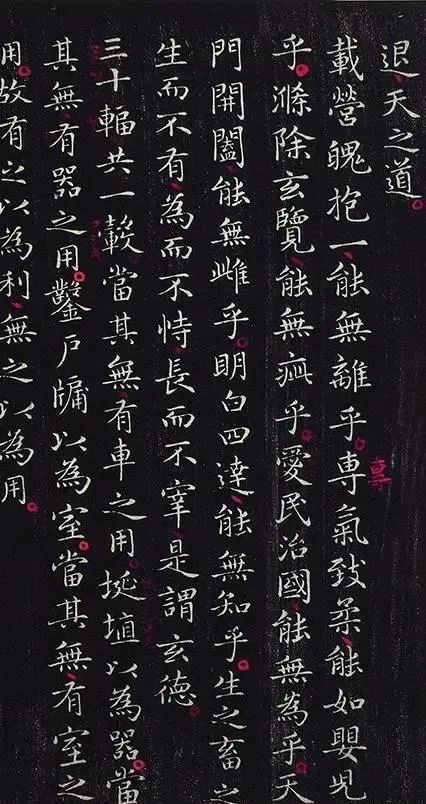 退天之道
載營魄抱一能無離乎專氣致柔能如嬰兒
乎滌除玄覽能無疵乎愛民治國能無為乎天
門開闔能無雌乎明白四達能無知乎生之畜之
生而不有為而不恃長而不宰是謂玄德
三十輻共一轂當其無有車之用埏埴以為器當
其無有器之用鑿戶牖以為室當其無有室之
用故有之以為利無之以為用